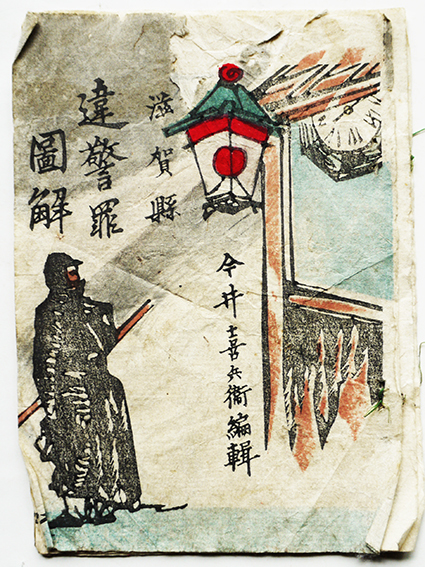 滋賀縣
違警罪
圖解
今井喜兵衛編輯